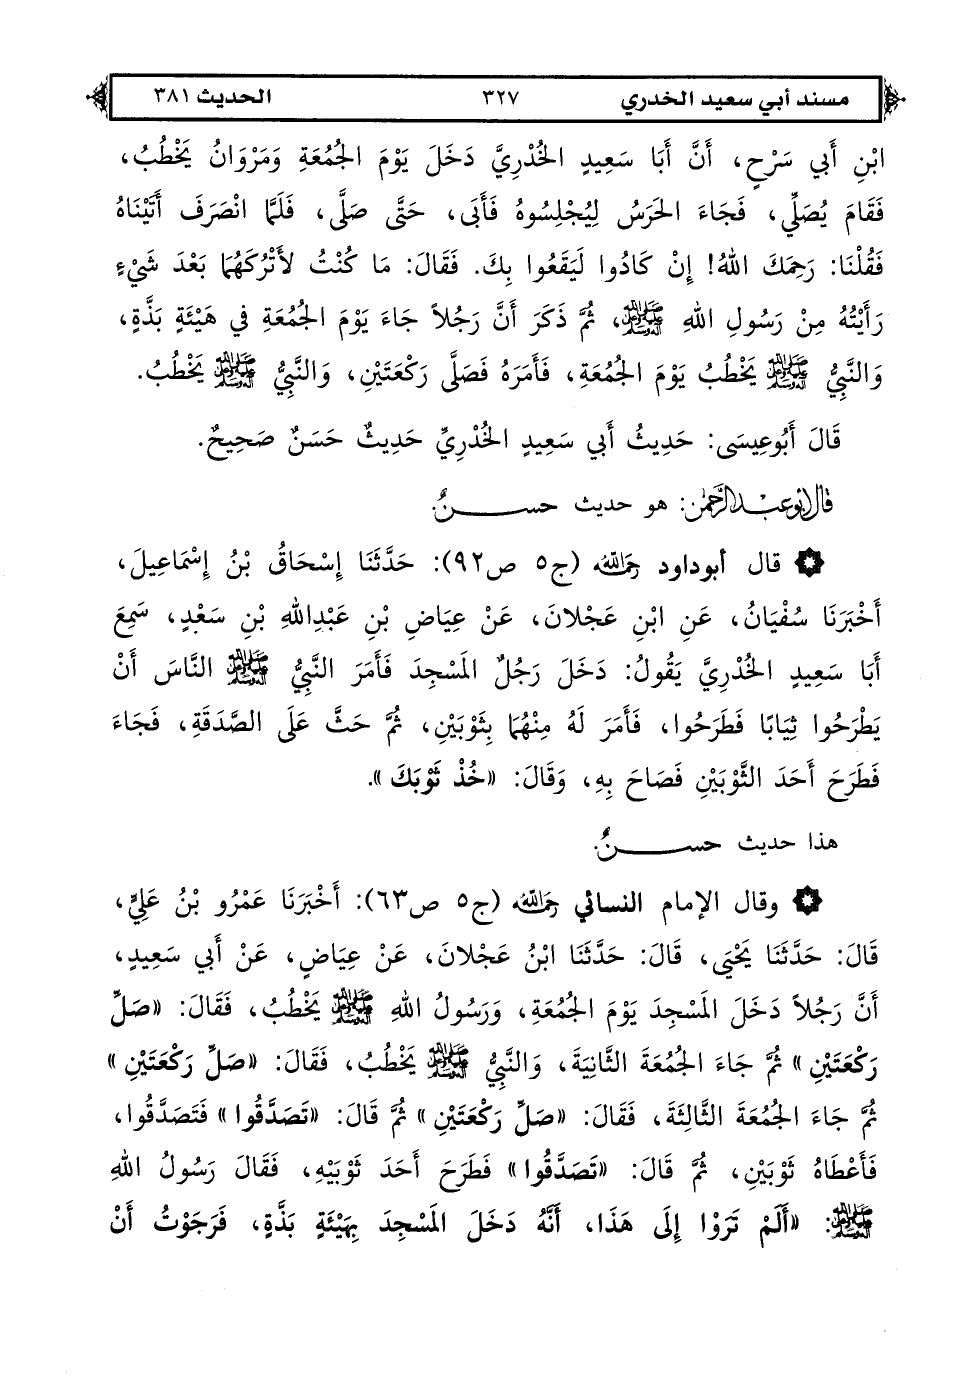 مسند أبي سعيد الخدري ٣٢٧ الحديث ٣٨١
ابْنِ أَبِي سَرْحٍ، أَنَّ أَبَا سَعِيدٍ الخُدْرِيَّ دَخَلَ يَوْمَ الجُمُعَةِ وَمَرْوَانُ يَخْطُبُ،
فَقَامَ يُصَلِّي، فَجَاءَ الحَرَسُ لِيُجْلِسُوهُ فَأَبَى، حَتَّى صَلَّى، فَلَمَّا انْصَرَفَ أَتَيْنَاهُ
فَقُلْنَا: رَحِمَكَ اللهُ! إِنْ كَادُوا لَيَقَعُوا بِكَ. فَقَالَ: مَا كُنْتُ لأَتْرُكَهُمَا بَعْدَ شَيْءٍ
رَأَيْتُهُ مِنْ رَسُولِ اللهِ ﷺ، ثُمَّ ذَكَرَ أَنَّ رَجُلاً جَاءَ يَوْمَ الجُمُعَةِ فِي هَيْئَةٍ بَذَّةٍ،
وَالنَّبِيُّ ﷺ يَخْطُبُ يَوْمَ الجُمُعَةِ، فَأَمَرَهُ فَصَلَّى رَكْعَتَيْنِ، وَالنَّبِيُّ ﷺ يَخْطُبُ.
قَالَ أَبُوعِيسَى: حَدِيثُ أَبِي سَعِيدٍ الخُدْرِيِّ حَدِيثٌ حَسَنٌ صَحِيحٌ.
قال أبو عبد الرحمن: هو حديث حســـــنٌ.
قال أبوداود رحمه الله (ج٥ ص٩٢): حَدَّثَنَا إِسْحَاقُ بْنُ إِسْمَاعِيلَ،
أَخْبَرَنَا سُفْيَانُ، عَنِ ابْنِ عَجْلانَ، عَنْ عِيَاضِ بْنِ عَبْدِاللهِ بْنِ سَعْدٍ، سَمِعَ
أَبَا سَعِيدٍ الخُدْرِيَّ يَقُولُ: دَخَلَ رَجُلٌ المَسْجِدَ فَأَمَرَ النَّبِيُّ ﷺ النَّاسَ أَنْ
يَطْرَحُوا ثِيَابًا فَطَرَحُوا، فَأَمَرَ لَهُ مِنْهُمَا بِثَوْبَيْنِ، ثُمَّ حَثَّ عَلَى الصَّدَقَةِ، فَجَاءَ
فَطَرَحَ أَحَدَ الثَّوْبَيْنِ فَصَاحَ بِهِ، وَقَالَ: «خُذْ ثَوْبَكَ».
هذا حديث حســـــنٌ.
وقال الإمام النسائي رحمه الله (ج٥ ص٦٣): أَخْبَرَنَا عَمْرُو بْنُ عَلِيٍّ،
قَالَ: حَدَّثَنَا يَحْيَى، قَالَ: حَدَّثَنَا ابْنُ عَجْلانَ، عَنْ عِيَاضٍ، عَنْ أَبِي سَعِيدٍ،
أَنَّ رَجُلاً دَخَلَ المَسْجِدَ يَوْمَ الجُمُعَةِ، وَرَسُولُ اللهِ ﷺ يَخْطُبُ، فَقَالَ: «صَلِّ
رَكْعَتَيْنِ» ثُمَّ جَاءَ الجُمُعَةَ الثَّانِيَةَ، وَالنَّبِيُّ ﷺ يَخْطُبُ، فَقَالَ: «صَلِّ رَكْعَتَيْنِ»
ثُمَّ جَاءَ الجُمُعَةَ الثَّالِثَةَ، فَقَالَ: «صَلِّ رَكْعَتَيْنِ» ثُمَّ قَالَ: «تَصَدَّقُوا» فَتَصَدَّقُوا،
فَأَعْطَاهُ ثَوْبَيْنِ، ثُمَّ قَالَ: «تَصَدَّقُوا» فَطَرَحَ أَحَدَ ثَوْبَيْهِ، فَقَالَ رَسُولُ اللهِ
ﷺ: «أَلَمْ تَرَوْا إِلَى هَذَا، أَنَّهُ دَخَلَ المَسْجِدَ بِهَيْئَةٍ بَذَّةٍ، فَرَجَوْتُ أَنْ